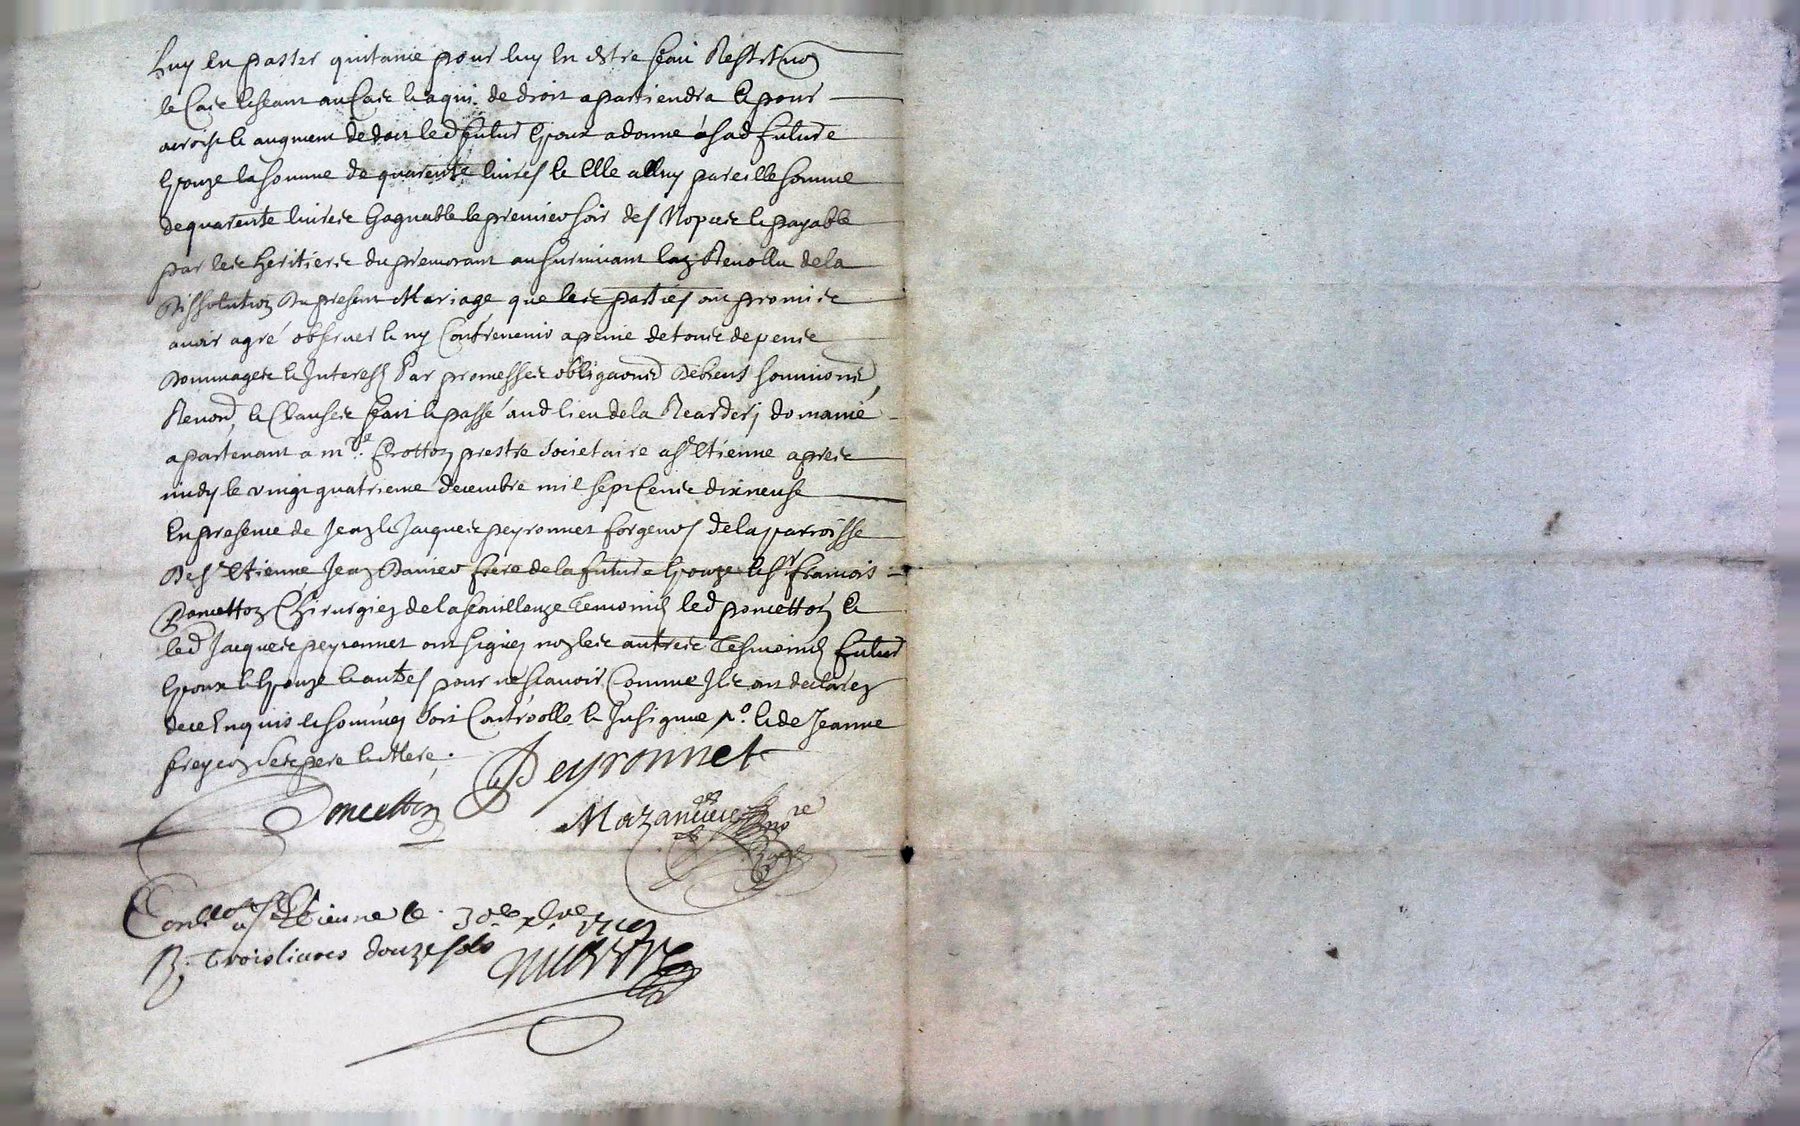 luy en passer quitance pour luy en estre fait Restitu͠on
le Cas escheant au Cas et a qui de droit apartiendra et pour
acroist et augment de dot led futur Epoux a donné a sad future
Epouze la somme de quarente livres et Elle a luy pareille somme
de quarente livres Gagnable le premier soir des Nopces et payable
par les heritiers du premorant au survivant lan Revollu de la
Dissolution du present Mariage que les parties ont promis
avoir agré observer et ny Contrevenir a peine de tous depens
Dommages et Interests Par promesses obliga͠ons de biens soumi͠ons
Renon͠d et Clauses fait et passé aud lieu de la domaine
apartenant a mre Frotton prestre societaire a St Etienne apres
midy le vingt quatrieme decembre mil sept Cents dix neuf
En presence de Jean et Jacques peyronnet forgeurs de la parroisse
De St Etienne, Jean frere de la future Epouze et Sr francois
Poncetton Chirurgien de la fouillouze Temoins led poncetton et
led Jacques peyronnet ont signez non les autres Tesmoins futur
Epoux et Epouze et autres pour ne scavoir Comme Ils ont declarez
de ce Enquis et sommez soit Controolle et Insignué po. et de Jeanne
ses pere et Mere.
Peyronnet
Poncetton
Mazan nore
Royal
Conllé a St Etienne le 30e xbre 1719
R. Trois livres douze sols